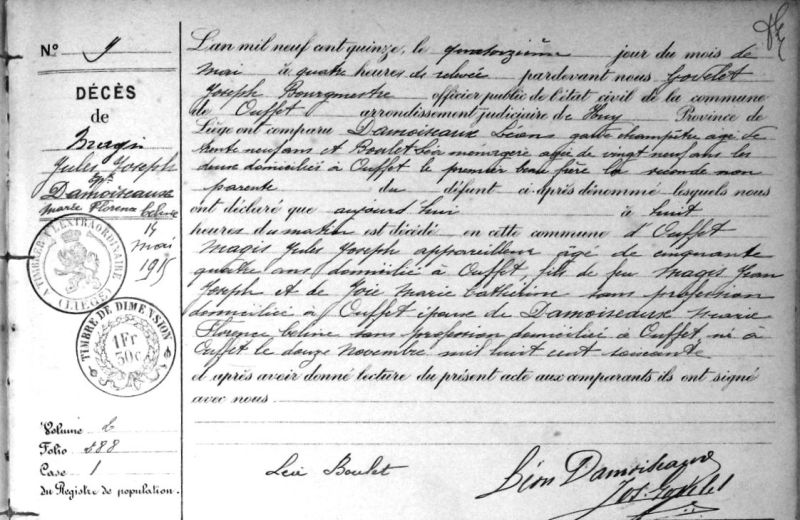 N° 9
DÉCÈS
de
Magis
Jules Joseph
Epx
Damoiseaux
Marie Florence Céline
14
mai
1915
A TIMBRER A L'EXTRAORDINAIRE
(LIÈGE)
TIMBRE DE DIMENSION
1 Fr
30 c
Volume 2
Folio 288
Case 1
du Registre de population.
L'an mil neuf cent quinze, le quatorzième jour du mois de
Mai à quatre heures de relevée pardevant nous Govelet
Joseph Bourgmestre officier public de l'état civil de la commune
de Ouffet arrondissement judiciaire de Huy Province de
Liége ont comparu Damoiseaux Léons garde champêtre agé de
trente neuf ans et Boulet Léa ménagère agée de vingt neuf ans les
deux domiciliés à Ouffet le premier beau frère la seconde non
parente du défunt ci-après dénommé lesquels nous
ont déclaré que aujourd'hui à huit
heures du matin est décédé en cette commune d'Ouffet
Magis Jules Joseph appareilleur âgé de cinquante
quatre ans domicilié à Ouffet fils de feu Magis Jean
Joseph et de Joie Marie Catherine sans profession
domiciliée à Ouffet époux de Damoiseaux Marie
Florence Celine sans profession domiciliée à Ouffet, né à
Ouffet le douze Novembre mil huit cent soixante
et après avoir donné lecture du présent acte aux comparants ils ont signé
avec nous
Lea Boulet
Léon Damoiseaux
Jos. Govelet